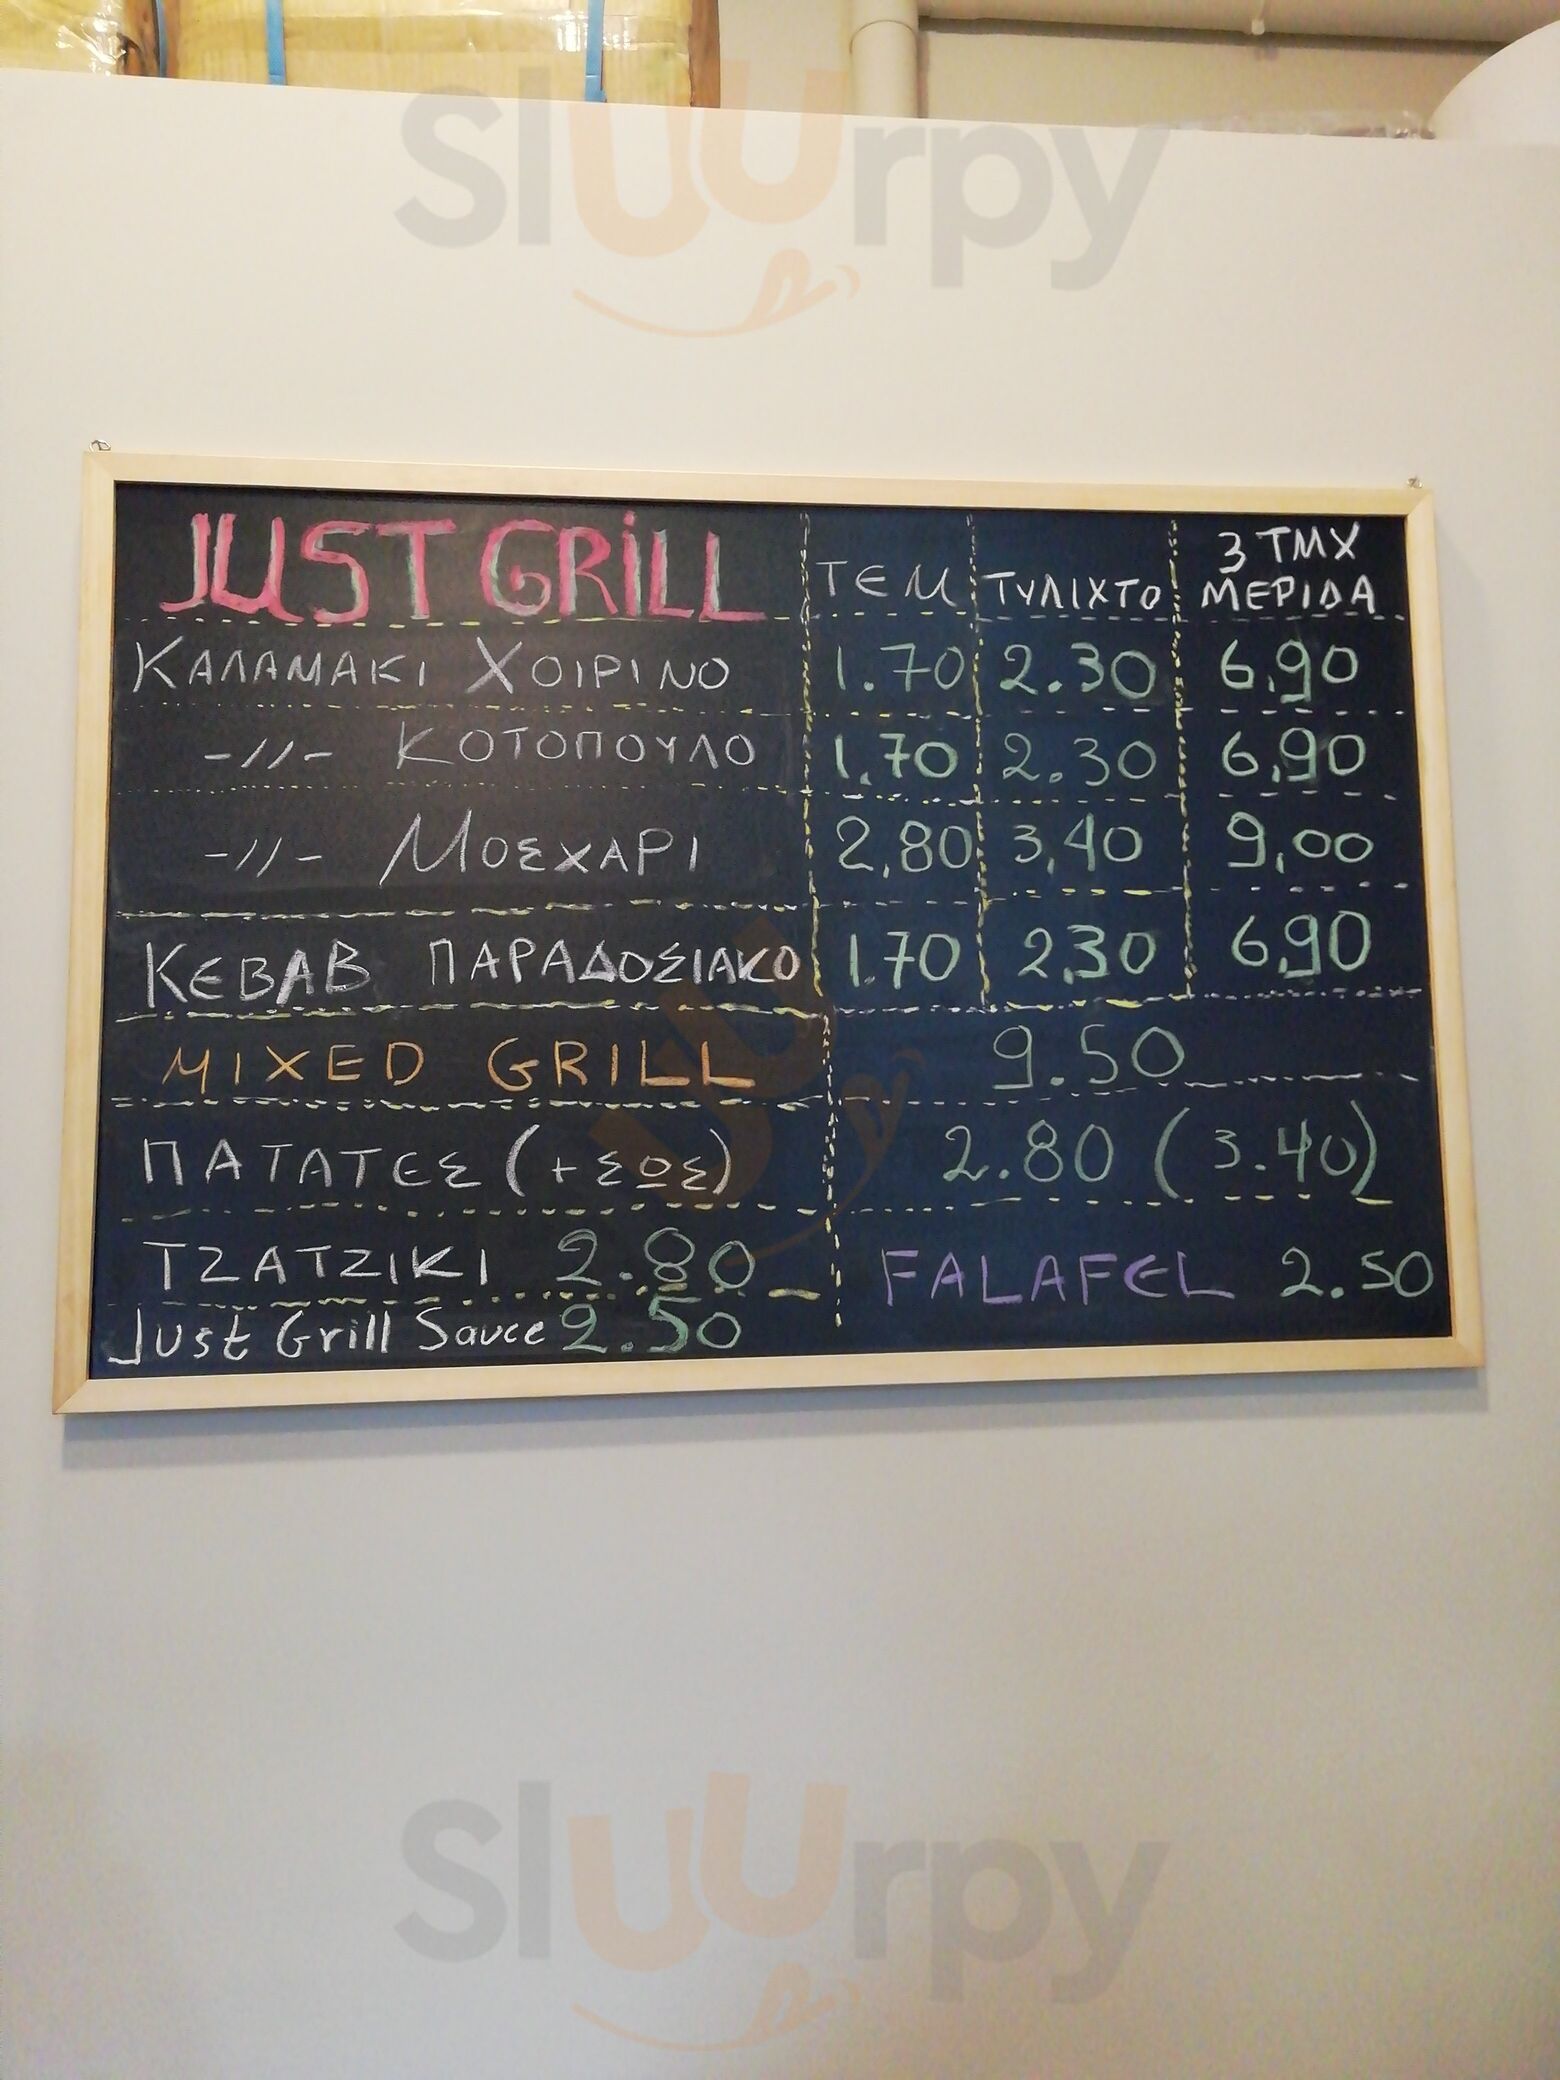 Sluurpy
JUST GRiLL ΤΕΜ ΤΥΛΙΧΤΟ 3 ΤΜΧ ΜΕΡΙΔΑ
ΚΑΛΑΜΑΚΙ ΧΟΙΡΙΝΟ 1.70 2.30 6,90
-//- ΚΟΤΟΠΟΥΛΟ 1.70 2.30 6,90
-//- ΜΟΣΧΑΡΙ 2,80 3,40 9,00
ΚΕΒΑΒ ΠΑΡΑΔΟΣΙΑΚΟ 1.70 2,30 6,90
MIXED GRILL 9.50
ΠΑΤΑΤΕΣ (+ΣΩΣ) 2.80 (3.40)
ΤΖΑΤΖΙΚΙ 2.80 FALAFEL 2.50
Just Grill Sauce 2.50
Sluurpy